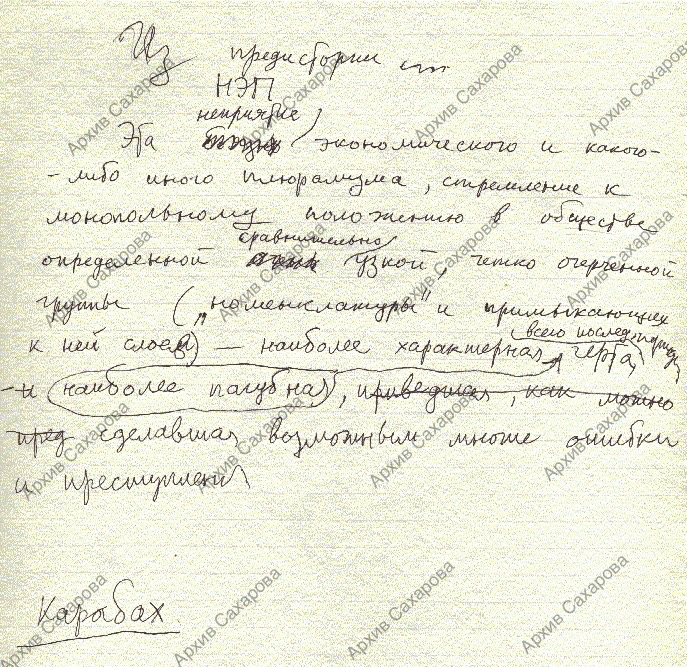 Из предистории
НЭП
неприятие
Эта экономического и какого-
-либо иного плюрализма, стремление к
монопольному положению в обществе
сравнительно
определенной узкой, четко очерченной
группы („номенклатуры" и примыкающих
к ней слоев) — наиболее характерная черта,
всего послед. периода
-и (наиболее пагубная), приведшая, как можно
пред сделавшая возможным многие ошибки
и преступления
Карабах
Архив Сахарова